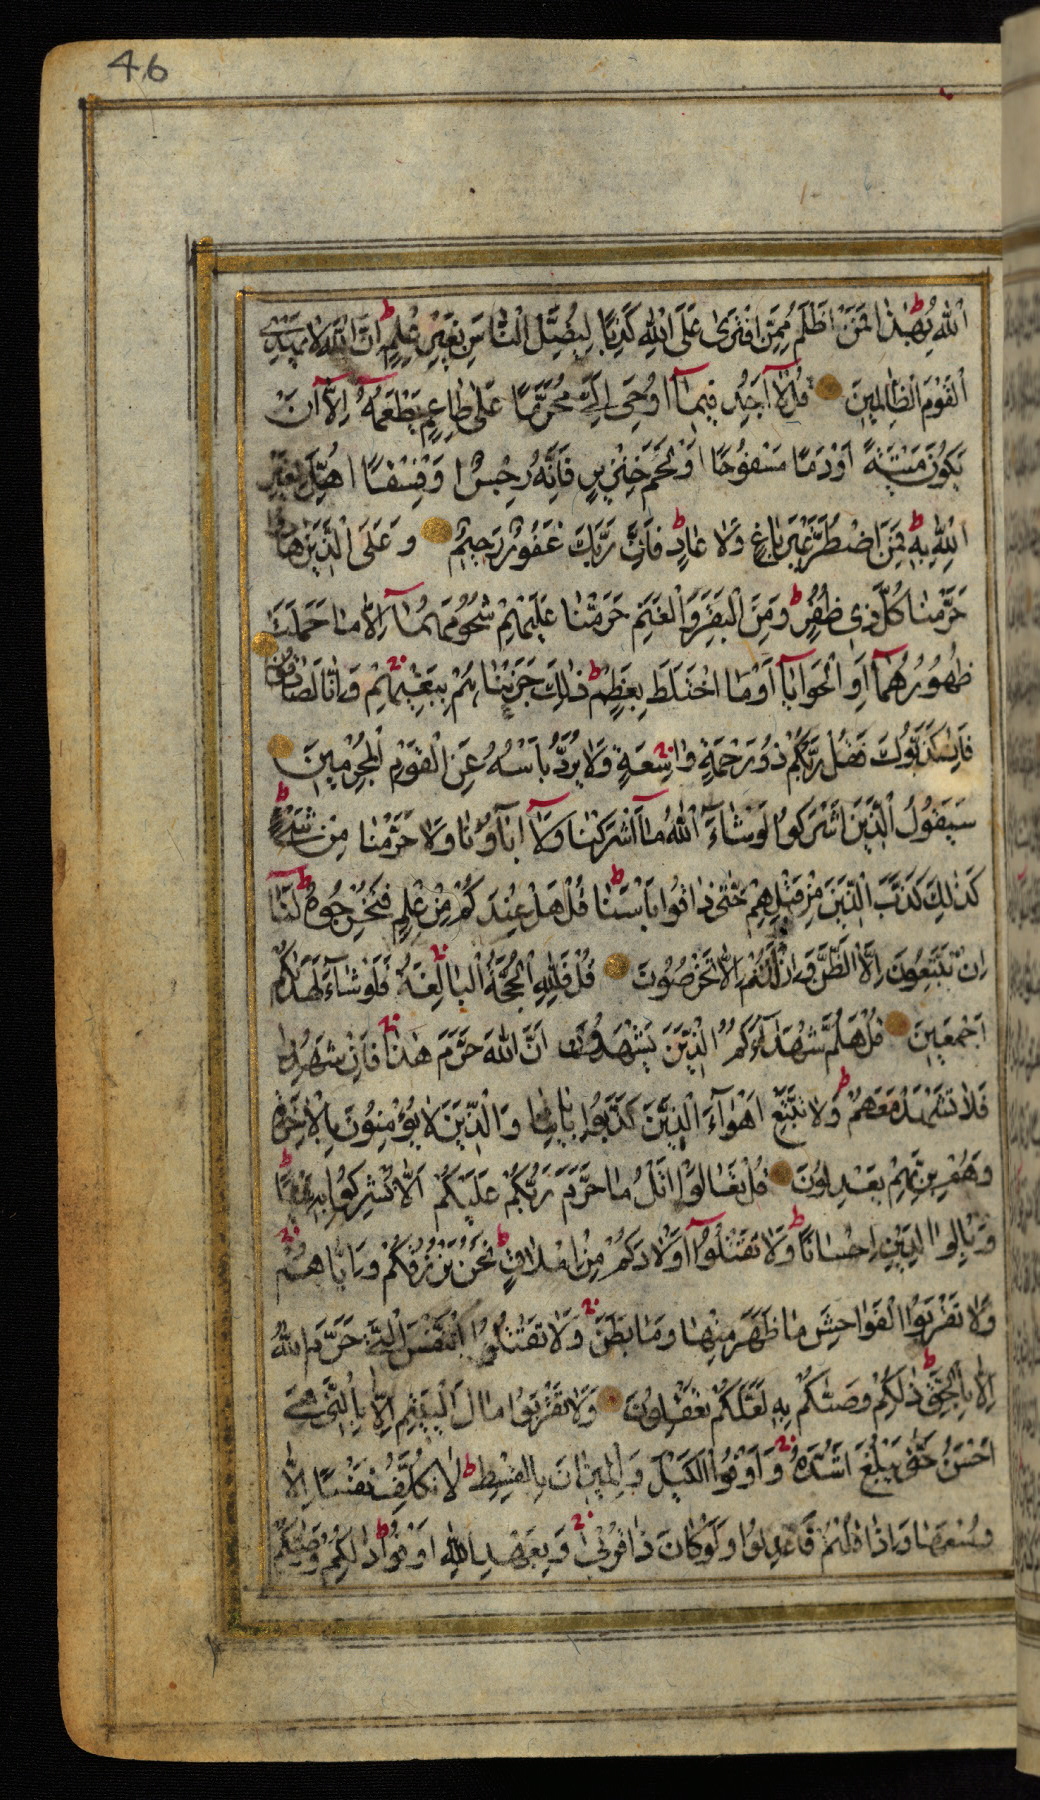 46
اللهُ بِهٰذَا فَمَنْ اَظْلَمُ مِمَّنِ افْتَرٰى عَلَى اللهِ كَذِبًا لِيُضِلَّ النَّاسَ بِغَيْرِ عِلْمٍ ط اِنَّ اللهَ لَا يَهْدِى
الْقَوْمَ الظَّالِمِينَ قُلْ لَّا اَجِدُ فِيمَآ اُوحِىَ اِلَىَّ مُحَرَّمًا عَلٰى طَاعِمٍ يَطْعَمُهُ اِلَّآ اَنْ
يَكُونَ مَيْتَةً اَوْ دَمًا مَسْفُوحًا اَوْ لَحْمَ خِنْزِيرٍ فَاِنَّهُ رِجْسٌ اَوْ فِسْقًا اُهِلَّ لِغَيْرِ
اللهِ بِهِ ط فَمَنِ اضْطُرَّ غَيْرَ بَاغٍ وَلَا عَادٍ ط فَاِنَّ رَبَّكَ غَفُورٌ رَحِيمٌ وَعَلَى الَّذِينَ هَادُوا
حَرَّمْنَا كُلَّ ذِى ظُفُرٍ ط وَمِنَ الْبَقَرِ وَالْغَنَمِ حَرَّمْنَا عَلَيْهِمْ شُحُومَهُمَآ اِلَّا مَا حَمَلَتْ
ظُهُورُهُمَآ اَوِ الْحَوَايَآ اَوْ مَا اخْتَلَطَ بِعَظْمٍ ط ذٰلِكَ جَزَيْنَاهُمْ بِبَغْيِهِمْ وَاِنَّا لَصَادِقُونَ
فَاِنْ كَذَّبُوكَ فَقُلْ رَبُّكُمْ ذُو رَحْمَةٍ وَاسِعَةٍ وَلَا يُرَدُّ بَأْسُهُ عَنِ الْقَوْمِ الْمُجْرِمِينَ
سَيَقُولُ الَّذِينَ اَشْرَكُوا لَوْ شَآءَ اللهُ مَآ اَشْرَكْنَا وَلَآ اٰبَآؤُنَا وَلَا حَرَّمْنَا مِنْ شَىْءٍ ط
كَذٰلِكَ كَذَّبَ الَّذِينَ مِنْ قَبْلِهِمْ حَتّٰى ذَاقُوا بَأْسَنَا ط قُلْ هَلْ عِنْدَكُمْ مِنْ عِلْمٍ فَتُخْرِجُوهُ لَنَا ط
اِنْ تَتَّبِعُونَ اِلَّا الظَّنَّ وَاِنْ اَنْتُمْ اِلَّا تَخْرُصُونَ قُلْ فَلِلّٰهِ الْحُجَّةُ الْبَالِغَةُ فَلَوْ شَآءَ لَهَدٰيكُمْ
اَجْمَعِينَ قُلْ هَلُمَّ شُهَدَآءَكُمُ الَّذِينَ يَشْهَدُونَ اَنَّ اللهَ حَرَّمَ هٰذَا فَاِنْ شَهِدُوا
فَلَا تَشْهَدْ مَعَهُمْ ط وَلَا تَتَّبِعْ اَهْوَآءَ الَّذِينَ كَذَّبُوا بِاٰيَاتِنَا وَالَّذِينَ لَا يُؤْمِنُونَ بِالْاٰخِرَةِ
وَهُمْ بِرَبِّهِمْ يَعْدِلُونَ قُلْ تَعَالَوْا اَتْلُ مَا حَرَّمَ رَبُّكُمْ عَلَيْكُمْ اَلَّا تُشْرِكُوا بِهِ شَيْئًا ط
وَبِالْوَالِدَيْنِ اِحْسَانًا ط وَلَا تَقْتُلُوآ اَوْلَادَكُمْ مِنْ اِمْلَاقٍ ط نَحْنُ نَرْزُقُكُمْ وَاِيَّاهُمْ
وَلَا تَقْرَبُوا الْفَوَاحِشَ مَا ظَهَرَ مِنْهَا وَمَا بَطَنَ وَلَا تَقْتُلُوا النَّفْسَ الَّتِى حَرَّمَ اللهُ
اِلَّا بِالْحَقِّ ط ذٰلِكُمْ وَصّٰيكُمْ بِهِ لَعَلَّكُمْ تَعْقِلُونَ وَلَا تَقْرَبُوا مَالَ الْيَتِيمِ اِلَّا بِالَّتِى هِىَ
اَحْسَنُ حَتّٰى يَبْلُغَ اَشُدَّهُ وَاَوْفُوا الْكَيْلَ وَالْمِيزَانَ بِالْقِسْطِ ط لَا نُكَلِّفُ نَفْسًا اِلَّا
وُسْعَهَا وَاِذَا قُلْتُمْ فَاعْدِلُوا وَلَوْ كَانَ ذَا قُرْبٰى وَبِعَهْدِ اللهِ اَوْفُوا ط ذٰلِكُمْ وَصّٰيكُمْ